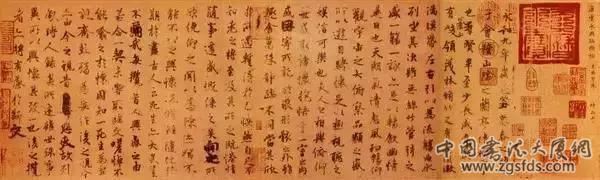 永和九年歲在癸丑暮春之初會
于會稽山陰之蘭亭脩稧事
也群賢畢至少長咸集此地
有崇山峻領茂林脩竹又有清流激
湍暎帶左右引以為流觴曲水
列坐其次雖無絲竹管弦之
盛一觴一詠亦足以暢敘幽情
是日也天朗氣清惠風和暢仰
觀宇宙之大俯察品類之盛
所以遊目騁懷足以極視聽之
娛信可樂也夫人之相與俯仰
一世或取諸懷抱悟言一室之內
或因寄所託放浪形骸之外雖
趣舍萬殊靜躁不同當其欣
於所遇蹔得於己怏然自足不
知老之將至及其所之既惓情
隨事遷感慨係之矣向之所欣
俛仰之間以為陳迹猶不
能不以之興懷況脩短隨化終
期於盡古人云死生亦大矣豈
不痛哉每攬昔人興感之由
若合一契未嘗不臨文嗟悼不
能喻之於懷固知一死生為虛
誕齊彭殤為妄作後之視今
亦由今之視昔悲夫故列
敘時人錄其所述雖世殊事
異所以興懷其致一也後之攬
者亦將有感於斯文
中國書法大展網